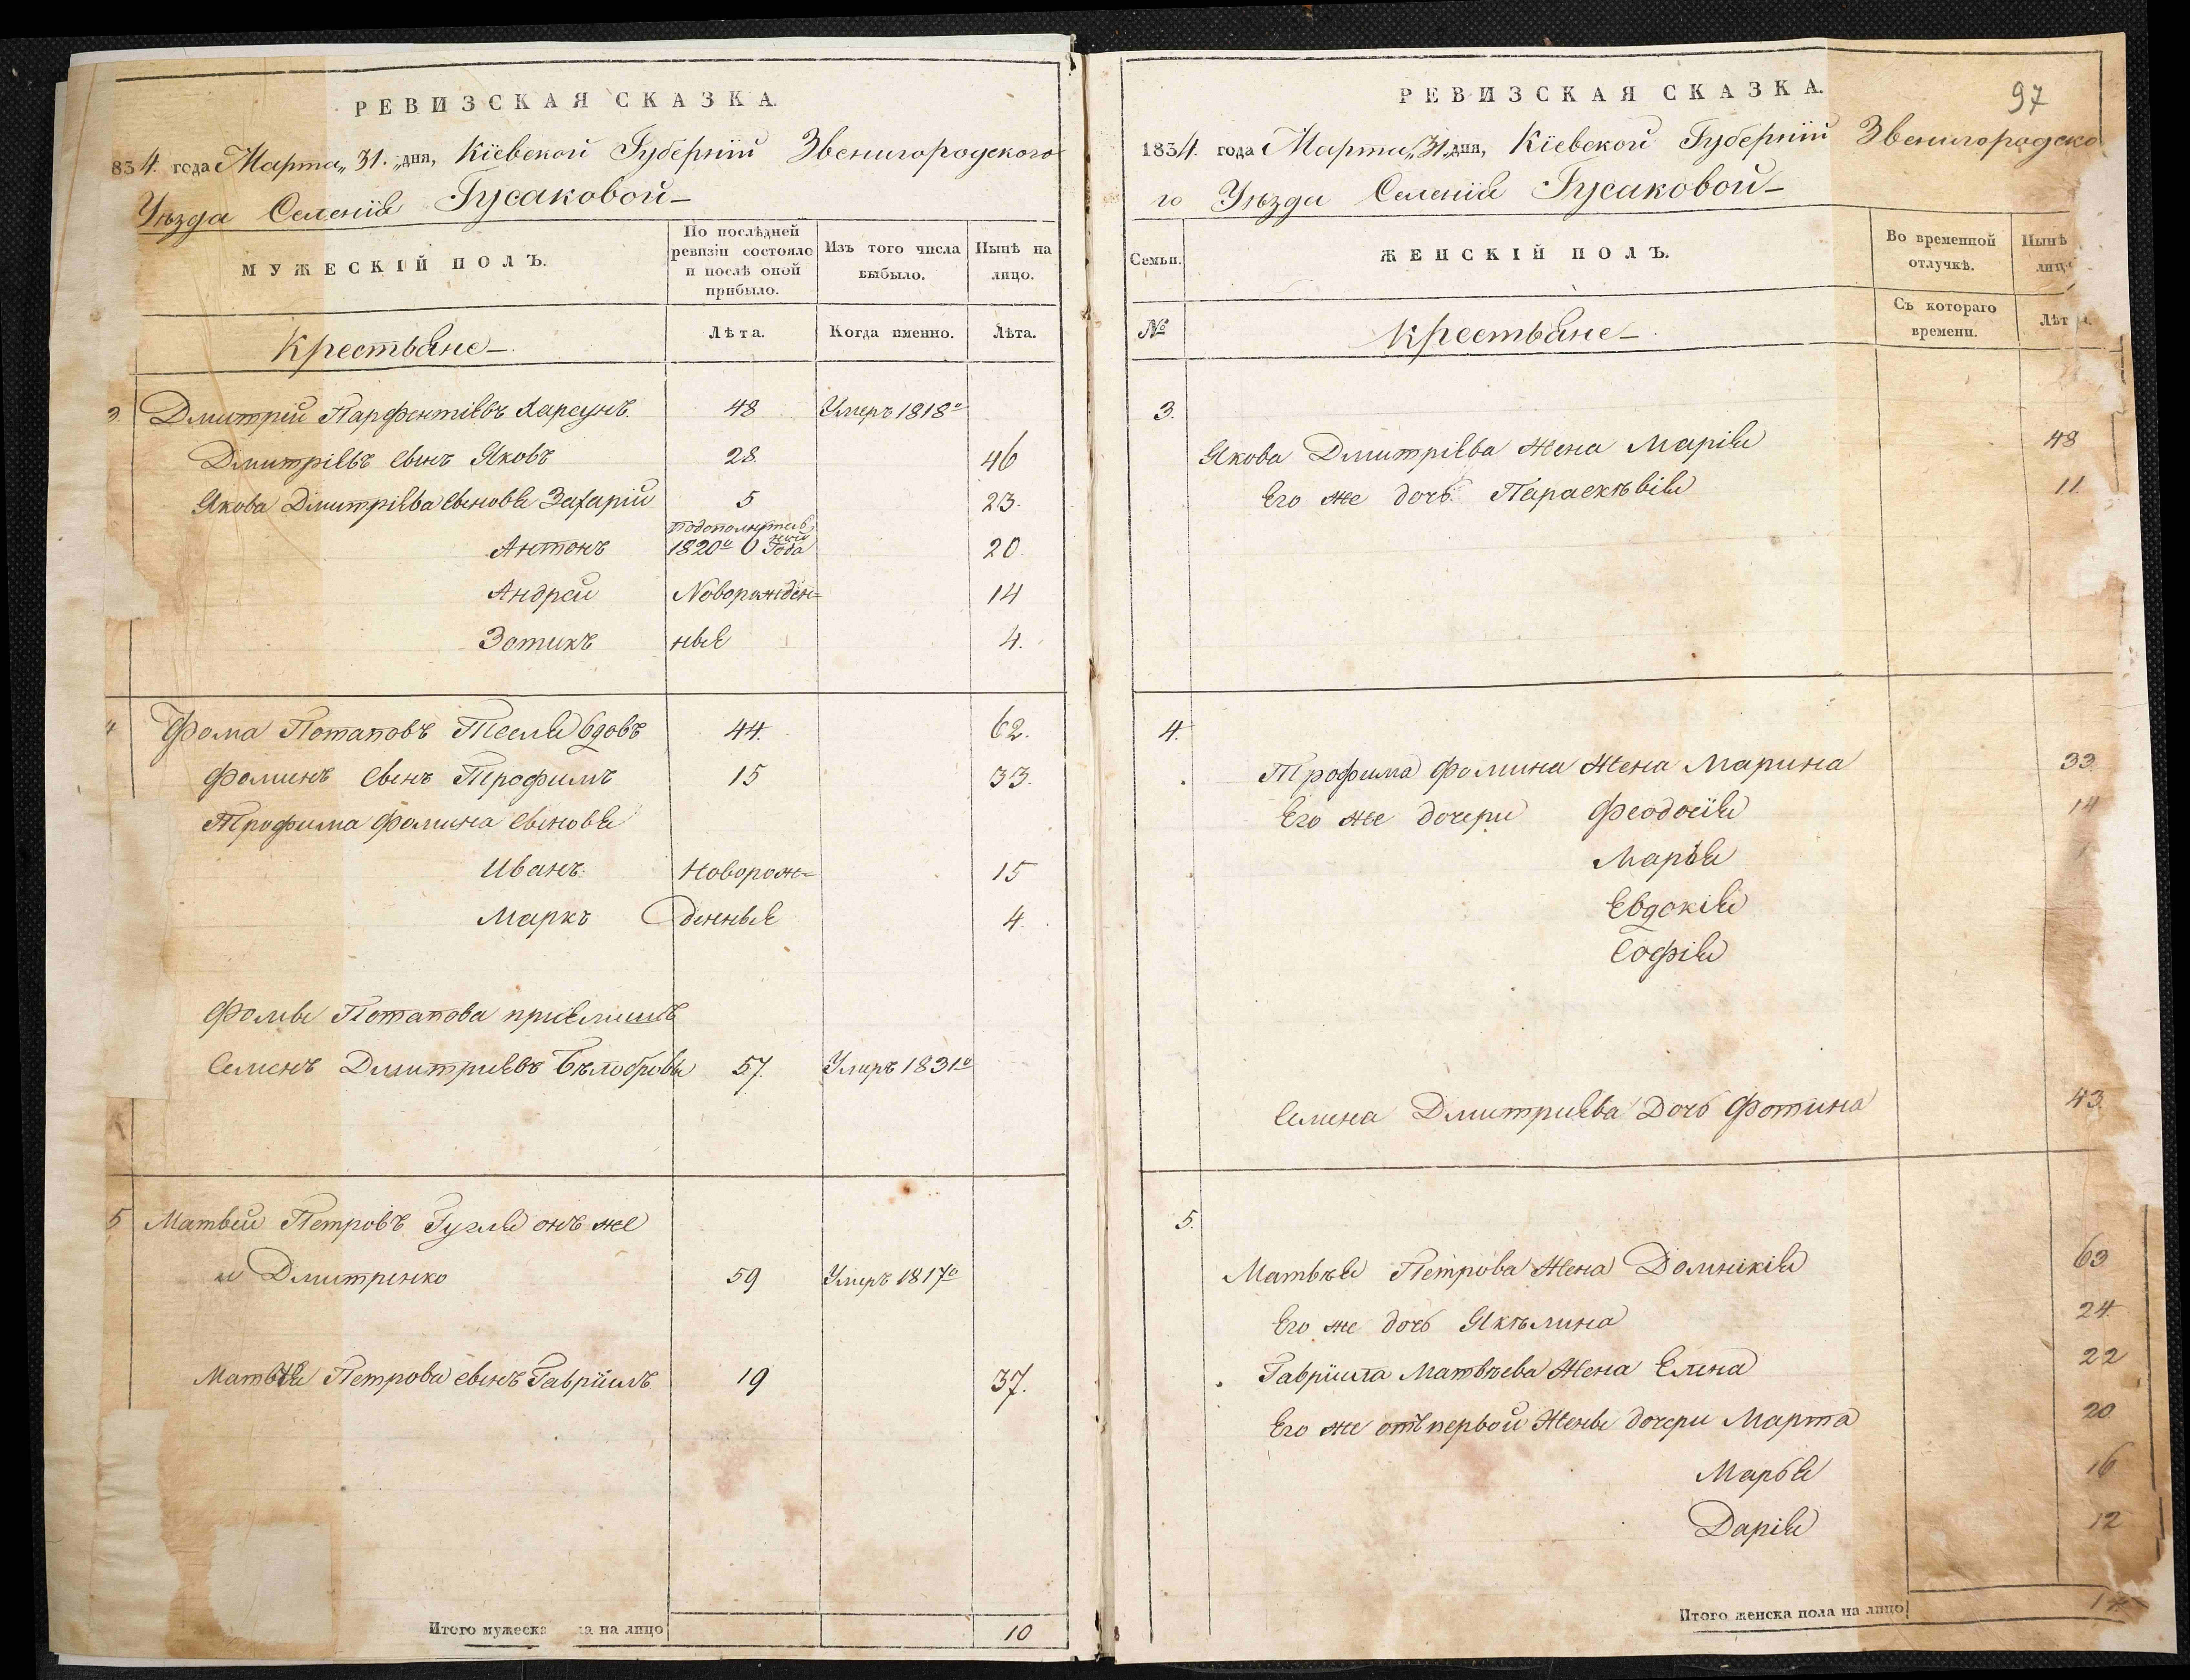 РЕВИЗСКАЯ СКАЗКА.
834. года Марта „31.„ дня, Кіевской Губерніи Звенигородского
Уѣзда Селенія Гусаковой-
МУЖЕСКІЙ ПОЛЪ.
По послѣдней ревизіи состояло и послѣ оной прибыло.
Изъ того числа выбыло.
Нынѣ на лицо.
Крестьяне-
Лѣта.
Когда именно.
Лѣта.
3. Дмитрій Парфентіевъ Харсунъ 48 Умеръ 1818º
Дмитріевъ сынъ Яковъ 28. 46
Якова Дмитріева сыновья Захарій 5 23.
Антонъ 1820º 6 Года 20.
Андрей Новорожден= 14
Зотикъ ные 4.
4 Фома Потаповъ Тесля вдовъ 44. 62.
Фоминъ сынъ Трофимъ 15 33.
Трофима Фомина сыновья
Иванъ. Новорож= 15
Маркъ денные 4.
Фомы Потапова пріемышъ
Семенъ Дмитриевъ Бѣлобровы 57. Умеръ 1831º
5 Матвей Петровъ Гугля онъ же
и Дмитренко 59 Умеръ 1817º
Матвѣя Петрова сынъ Гавріилъ 19 37.
Итого мужеска ла на лицо 10
97
РЕВИЗСКАЯ СКАЗКА.
1834. года Марта „31„ дня, Кіевской Губерніи Звенигородско
го Уѣзда Селенія Гусаковой-
Семьи.
ЖЕНСКІЙ ПОЛЪ.
Во временной отлучкѣ.
Нынѣ лицо
№
Крестьяне-
Съ котораго времени.
Лѣта.
3.
Якова Дмитріева жена Марія 48
Его же дочь Параскѣвія 11.
4.
Трофима Фомина жена Марина 33.
Его же дочери Феодосія 14
Марья
Евдокія
Софія
Семена Дмитриева Дочь Фотина 43.
5.
Матвѣя Петрова жена Домнікія 63
Его же дочь Якѣлина 24.
Гавріила Матвѣева жена Елена 22
Его же отъ первой жены дочери Марта 20
Марья 16
Дарія 12
Итого женска пола на лицо